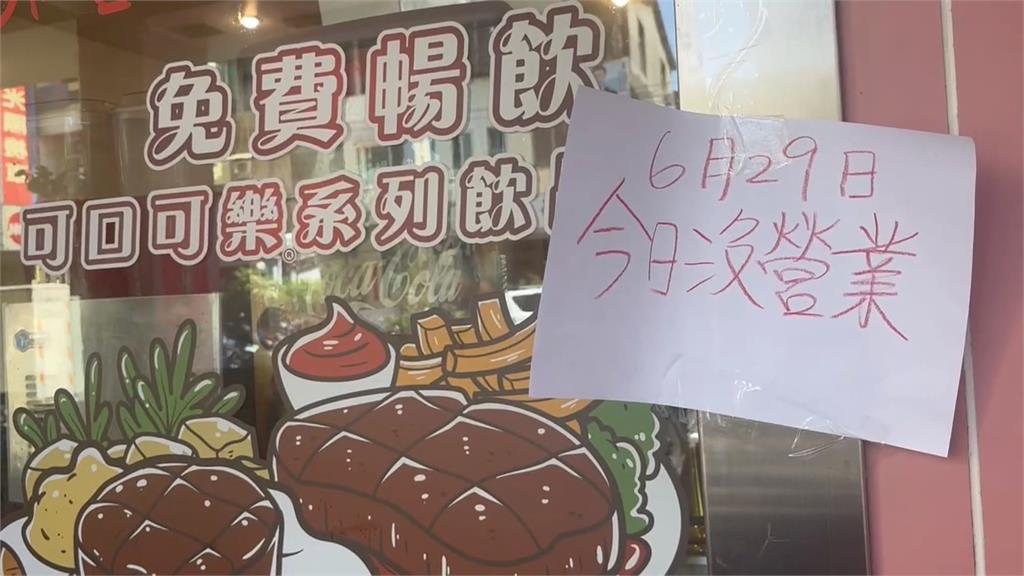 免費暢飲
可口可樂®系列飲
Coca Cola
6月29日
今日沒營業